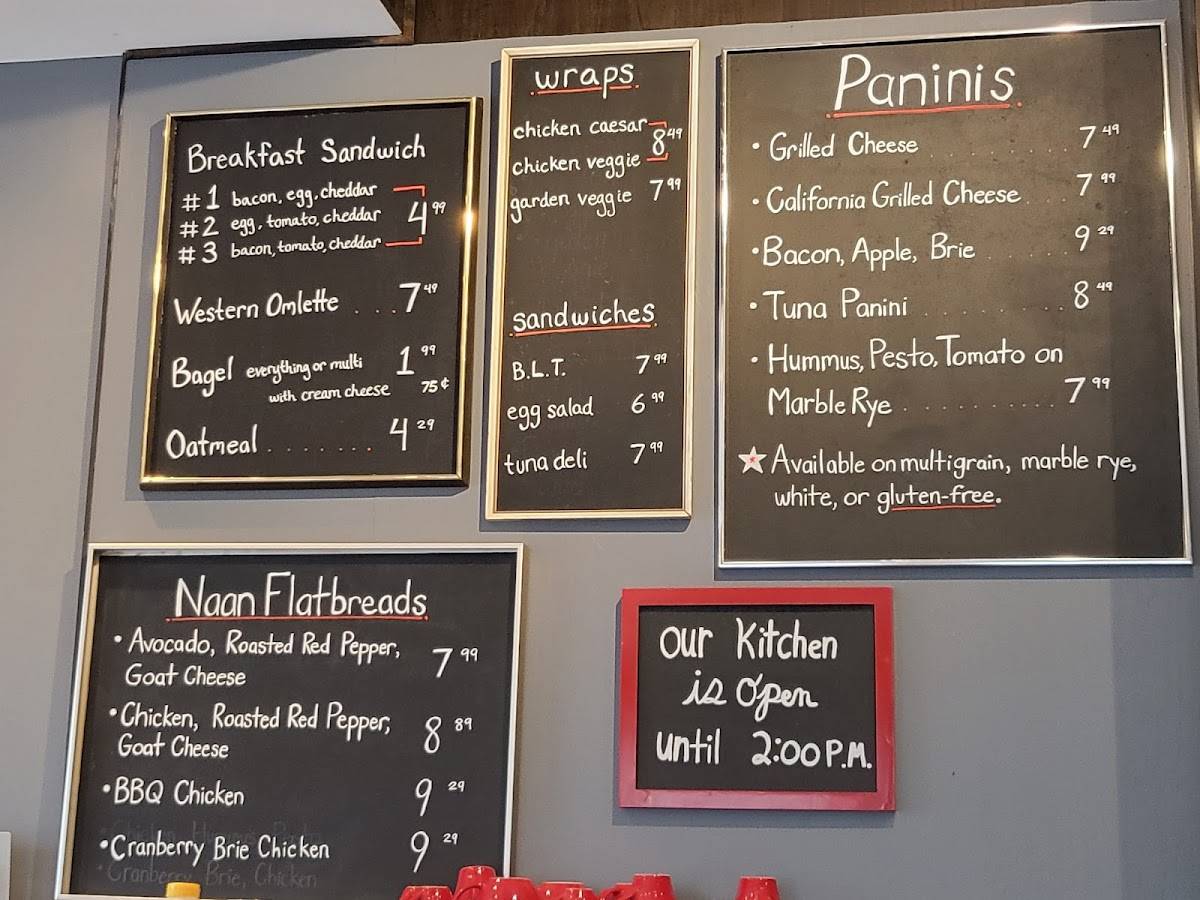 Breakfast Sandwich
#1 bacon, egg, cheddar
#2 egg, tomato, cheddar 4.99
#3 bacon, tomato, cheddar
Western Omlette . . . . 7.49
Bagel everything or multi 1.99
with cream cheese 75¢
Oatmeal . . . . . . . 4.29
wraps
chicken caesar
8.49
chicken veggie
garden veggie 7.99
sandwiches
B.L.T. 7.99
egg salad 6.99
tuna deli 7.99
Paninis
• Grilled Cheese . . . . . . . . . 7.49
• California Grilled Cheese . . . 7.99
• Bacon, Apple, Brie . . . . . . 9.29
• Tuna Panini . . . . . . . . . . 8.49
• Hummus, Pesto, Tomato on
Marble Rye . . . . . . . . . . 7.99
★ Available on multigrain, marble rye,
white, or gluten-free.
Naan Flatbreads
• Avocado, Roasted Red Pepper,
Goat Cheese 7.99
• Chicken, Roasted Red Pepper,
Goat Cheese 8.89
• BBQ Chicken 9.29
• Cranberry Brie Chicken 9.29
• Cranberry Brie, Chicken
Our Kitchen
is Open
until 2:00 P.M.